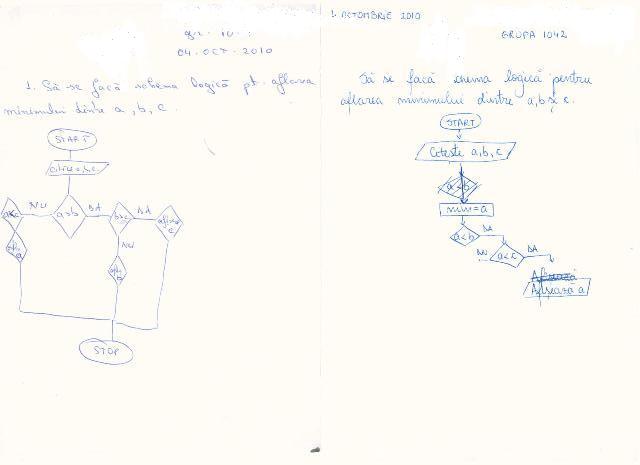 04.OCT.2010
1. Să se facă schema logică pt. aflarea
minimului dintre a, b, c.
START
a>b
NU
DA
b>c
DA
NU
STOP
1. OCTOMBRIE 2010
GRUPA 1042
Să se facă schema logică pentru
aflarea minimului dintre a, b și c.
START
Citește a, b, c
a<b
min=a
a<b
DA
a<c
NU
DA
Afisează
Afișează a